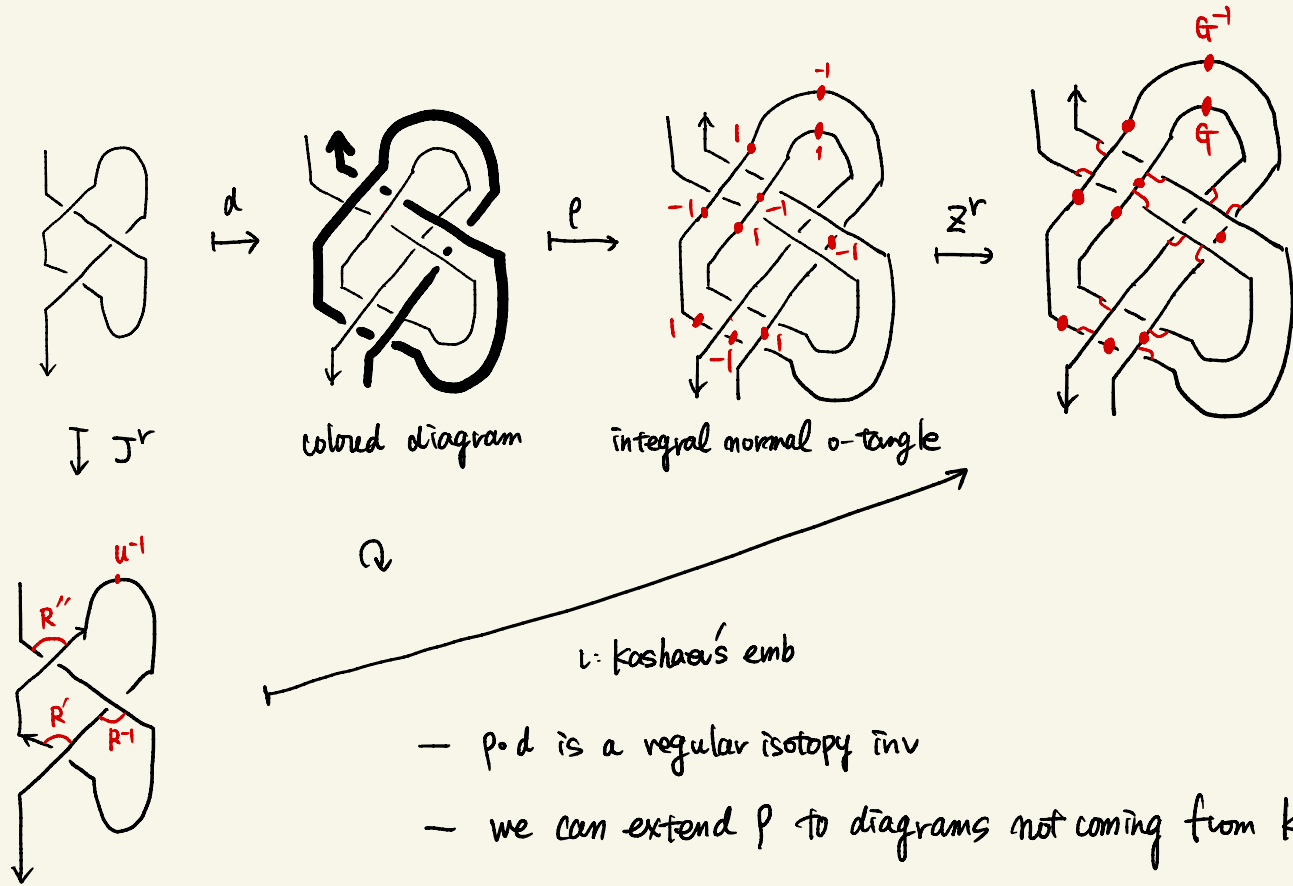 G⁻¹
-1
1
1
G
d
ρ
Z^r
-1
-1
1
-1
1
-1
1
J^r
colored diagram
integral normal o-tangle
u⁻¹
R″
R′
R⁻¹
ι: Kashaev's emb
— ρ∘d is a regular isotopy inv
— we can extend ρ to diagrams not coming from k